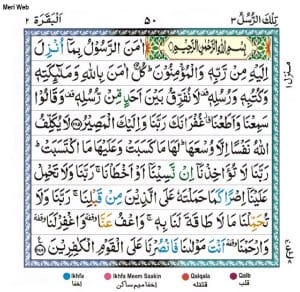 Meri Web
تِلْكَ الرُّسُلُ ٣
٥٠
اَلْبَقَرَة ٢
بِسْمِ اللّٰهِ الرَّحْمٰنِ الرَّحِيْمِ اٰمَنَ الرَّسُوْلُ بِمَاۤ اُنْزِلَ
اِلَيْهِ مِنْ رَّبِّهٖ وَالْمُؤْمِنُوْنَ ؕ كُلٌّ اٰمَنَ بِاللّٰهِ وَمَلٰٓئِكَتِهٖ
وَكُتُبِهٖ وَرُسُلِهٖ ۫ لَا نُفَرِّقُ بَيْنَ اَحَدٍ مِّنْ رُّسُلِهٖ ۫ وَقَالُوْا
سَمِعْنَا وَاَطَعْنَا ٭۫ غُفْرَانَكَ رَبَّنَا وَاِلَيْكَ الْمَصِيْرُ ﴿٢٨٥﴾ لَا يُكَلِّفُ
اللّٰهُ نَفْسًا اِلَّا وُسْعَهَا ؕ لَهَا مَا كَسَبَتْ وَعَلَيْهَا مَا اكْتَسَبَتْ ؕ
رَبَّنَا لَا تُؤَاخِذْنَاۤ اِنْ نَّسِيْنَاۤ اَوْ اَخْطَاْنَا ۚ رَبَّنَا وَلَا تَحْمِلْ
عَلَيْنَاۤ اِصْرًا كَمَا حَمَلْتَهٗ عَلَى الَّذِيْنَ مِنْ قَبْلِنَا ۚ رَبَّنَا وَلَا
تُحَمِّلْنَا مَا لَا طَاقَةَ لَنَا بِهٖ ۚ وَاعْفُ عَنَّا ٝ وَاغْفِرْ لَنَا ٝ
وَارْحَمْنَا ٝ اَنْتَ مَوْلٰىنَا فَانْصُرْنَا عَلَى الْقَوْمِ الْكٰفِرِيْنَ ﴿٢٨٦﴾
منزل ١
Ikhfa
Ikhfa Meem Saakin
Qalqala
Qalb
اخفا
اخفا میم ساکن
قلقلہ
قلب